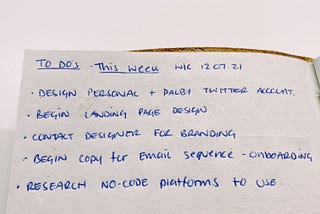 TO DO's - This week w/c 12.07.21
• DESIGN PERSONAL + DALBY TWITTER ACCOUNT.
• BEGIN LANDING PAGE DESIGN
• CONTACT DESIGNER FOR BRANDING
• BEGIN copy for Email sequence - ONBOARDING
• RESEARCH NO-CODE platforms to USE.